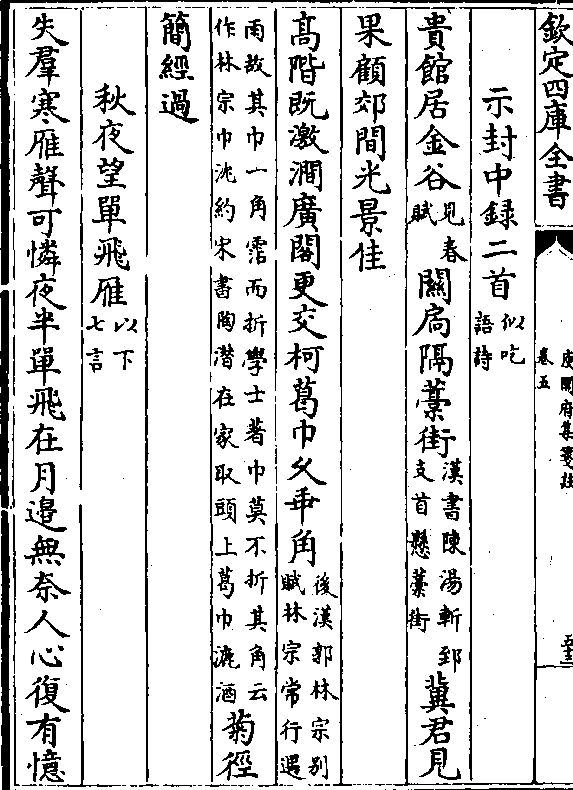 欽定四庫全書
庾開府集箋註
卷五
示封中録二首似吃語詩
貴館居金谷見春賦關扄隔藁街漢書陳湯斬郅支首懸藁街冀君見
果顧郊間光景佳
髙階既激澗廣閣更交柯葛巾久乖角後漢郭林宗别賦林宗常行遇
雨故其巾一角霑而折學士著巾莫不折其角云作林宗巾沈約宋書陶潛在家取頭上葛巾漉酒菊徑
簡經過
秋夜望單飛雁以下七言
失羣寒雁聲可憐夜半單飛在月邉無奈人心復有憶